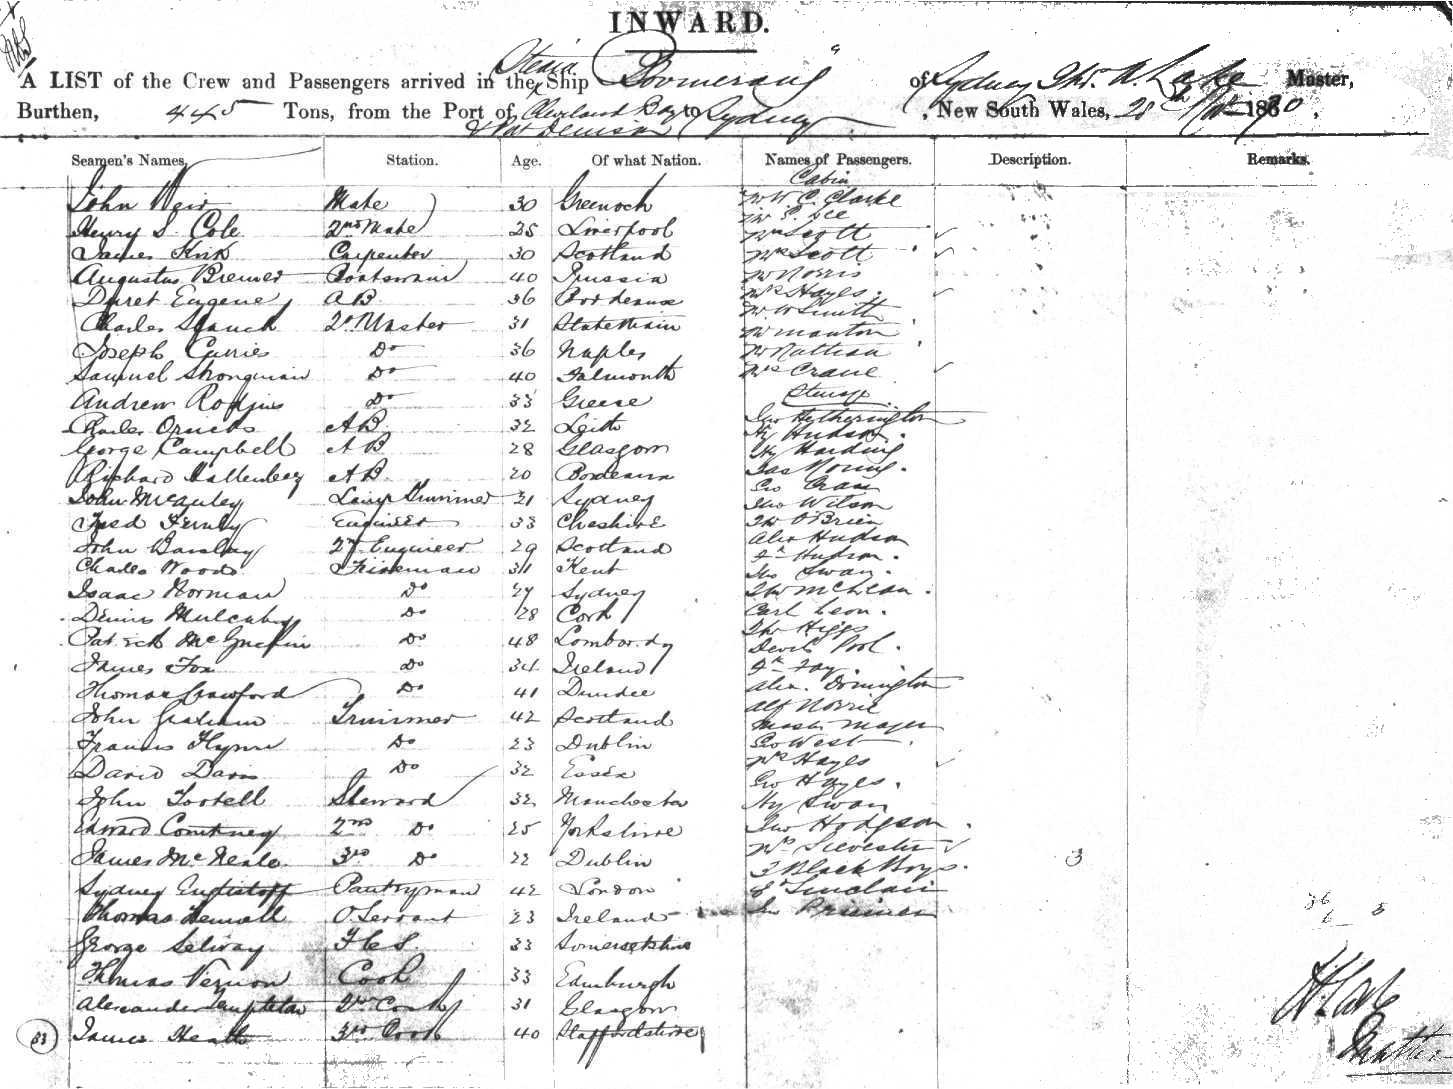 INWARD.
A LIST of the Crew and Passengers arrived in the Steam Ship "Boomerang" of Sydney Thos. A. Lake Master,
Burthen, 445 Tons, from the Port of Cleveland Bay & Port Denison to Sydney, New South Wales, 28th 1860
Seamen's Names. Station. Age. Of what Nation. Names of Passengers. Description. Remarks.
Cabin
John Weir Mate 30 Greenock Mr W. C. Clarke
Mr Lee
Henry S. Cole 2nd Mate 25 Liverpool Mr Scott
James Kirk Carpenter 30 Scotland Mrs Scott
Augustus Bremer Boatswain 40 Prussia Mr Norris
Eugene AB 36 Bordeaux Mrs Hayes
Charles 2r Master 31 Mr W Smith
Mr Manton
Joseph Curries Do 36 Naples Mr
Samuel Strongman Do 40 Falmouth Mrs Crane
Andrew Do 33 Greese
Charles AB 32 Leith Jno Hetherington
George Campbell AB 28 Glasgow Hy Hudson
Hy Harding
Richard AB 20 Bordeaux Jas Young
John McAuley Lamp Trimmer 21 Sydney Geo
Jno Wilson
Fred Engineer 33 Cheshire Th O'Brien
John Barclay 2nd Engineer 29 Scotland Alex Hudson
Charles Woods Fireman 31 Kent Hudson
Jno Swan
Isaac Norman Do 27 Sydney McLean
Denis Mulcahy Do 28 Cork Carl Leon
Thos Higgs
Patrick Do 48 Lombardy Pool
James Fox Do 34 Ireland Fay
Thomas Crawford Do 41 Dundee Alex.
Alf Norrie
John Graham Trimmer 42 Scotland
Francis Flynn Do 23 Dublin Geo West
David Davis Do 32 Essex Mrs Hayes
Geo Hayes
John Tootell Steward 32 Manchester Hy Swan
Edward Courtney 2nd Do 25 Yorkshire Jno Hodgson
James McNeale 3rd Do 22 Dublin Silvester
3 Black Boys 3
Sydney Pantryman 42 London Sinclair
Thomas O Servant 23 Ireland Jno
36
6 5
George Selway F C S. 33 Somersetshire
Thomas Vernon Cook 33 Edinburgh
Alexander 2nd Cook 31 Glasgow
33 James Heath 3rd Cook 40 Staffordshire